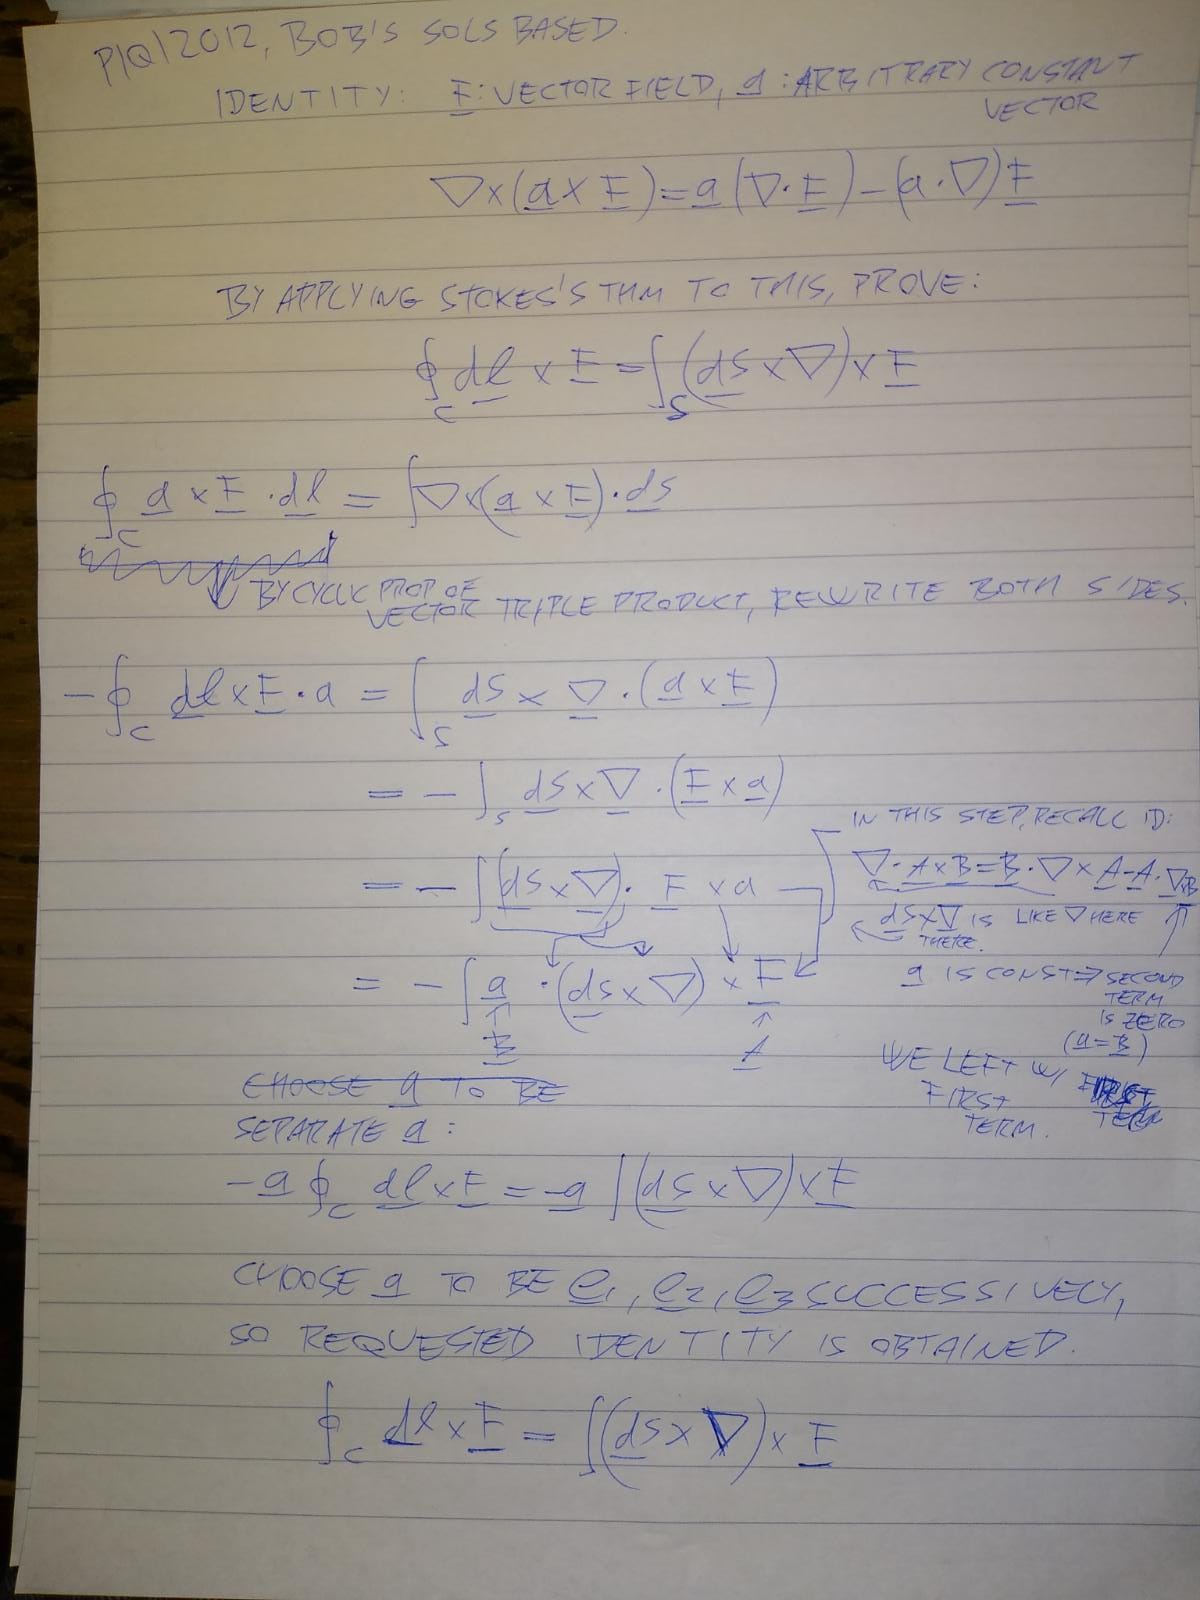 P1Q1 2012, BOB'S SOLS BASED.
IDENTITY: F: VECTOR FIELD, a: ARBITRARY CONSTANT
VECTOR
∇×(a×F)=a(∇·F)-(a·∇)F
BY APPLYING STOKES'S THM TO THIS, PROVE:
∮_C dl × F = ∫_S (dS×∇)×F
∮_C a × F · dl = ∫∇×(a×F)·dS
BY CYCLIC PROP OF
VECTOR TRIPLE PRODUCT, REWRITE BOTH SIDES.
-∮_C dl×F·a = ∫_S dS × ∇·(a×F)
= -∫_S dS×∇·(F×a)
IN THIS STEP, RECALL ID:
= -∫(dS×∇)· F × a
∇·A×B=B·∇×A-A·∇×B
dS×∇ IS LIKE ∇ HERE
THERE.
= -∫a·(dS×∇)×F
B
A
a IS CONST ⇒ SECOND
TERM
IS ZERO
(a=B)
WE LEFT W/
FIRST
TERM.
CHOOSE a TO BE
SEPARATE a:
-a∮_C dl×F=-a∫(dS×∇)×F
CHOOSE a TO BE e1, e2, e3 SUCCESSIVELY,
SO REQUESTED IDENTITY IS OBTAINED.
∮_C dl×F = ∫(dS×∇)×F